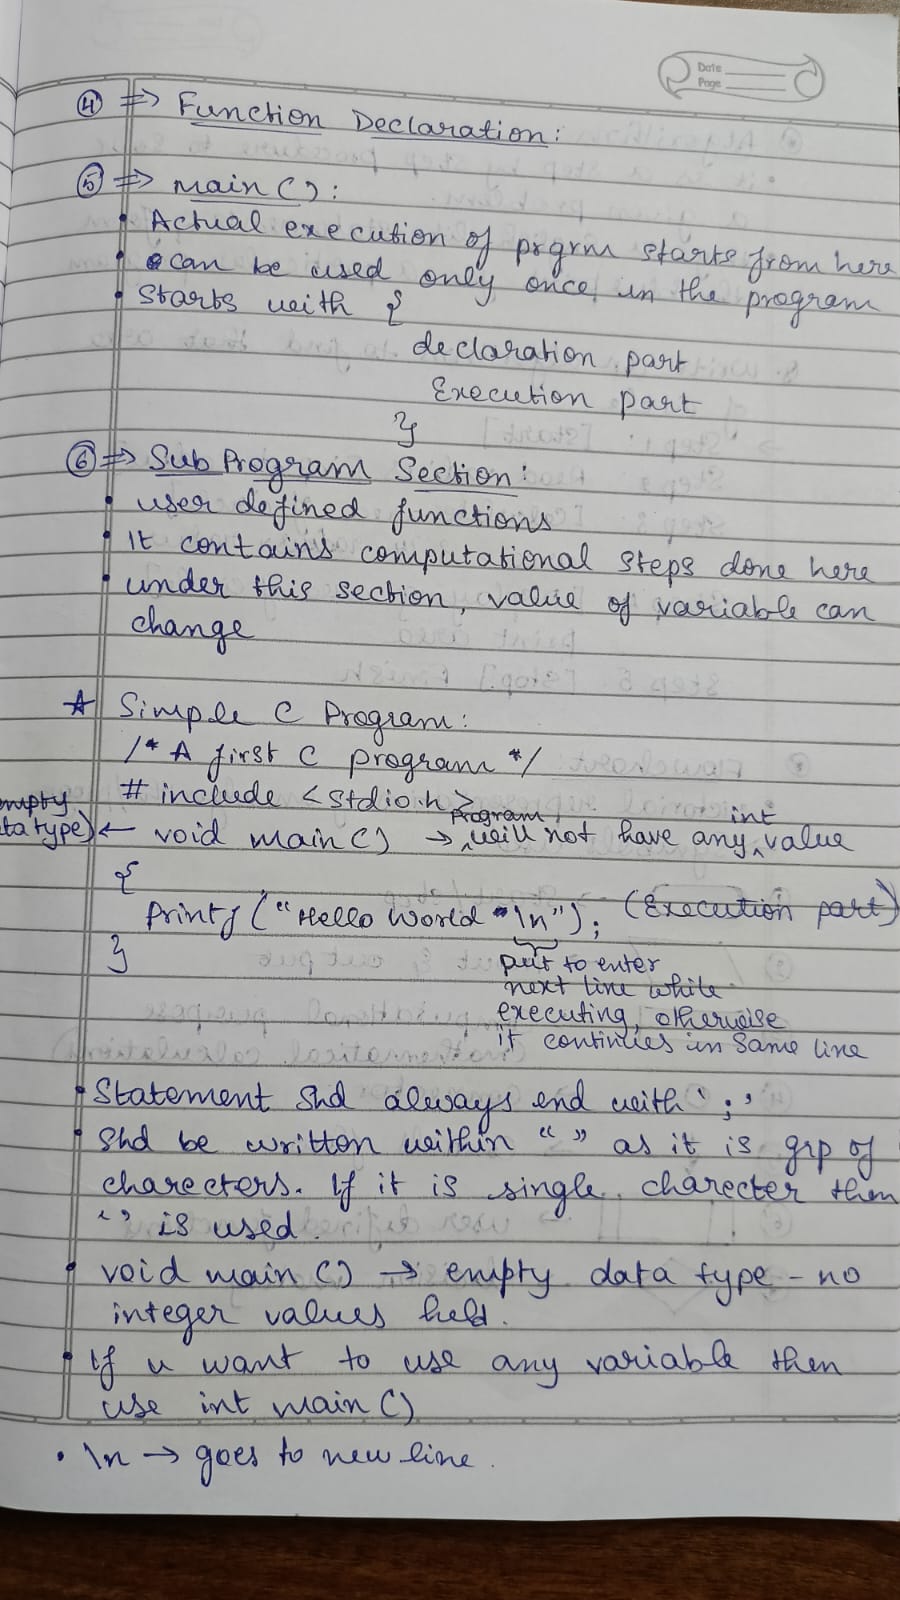 Date
Page
④ => Function Declaration:
⑤ => main():
• Actual execution of prgrm starts from here
• can be used only once in the program
• Starts with {
declaration part
Execution part
}
⑥ => Sub Program Section:
• user defined functions
• It contains computational steps done here
• under this section, value of variable can
change
☆ Simple C Program:
/* A first C program */
# include <stdio.h>
empty
ta type) ← void main() → program will not have any int value
{
printf("Hello World \n"); (Execution part)
}
put to enter
next line while
executing, otherwise
it continues in same line
• Statement shd always end with ';'
• Shd be written within “ ” as it is grp of
charecters. If it is single charecter then
‘ ’ is used.
• void main() → empty data type - no
integer values held.
• If u want to use any variable then
use int main()
• \n → goes to new line.